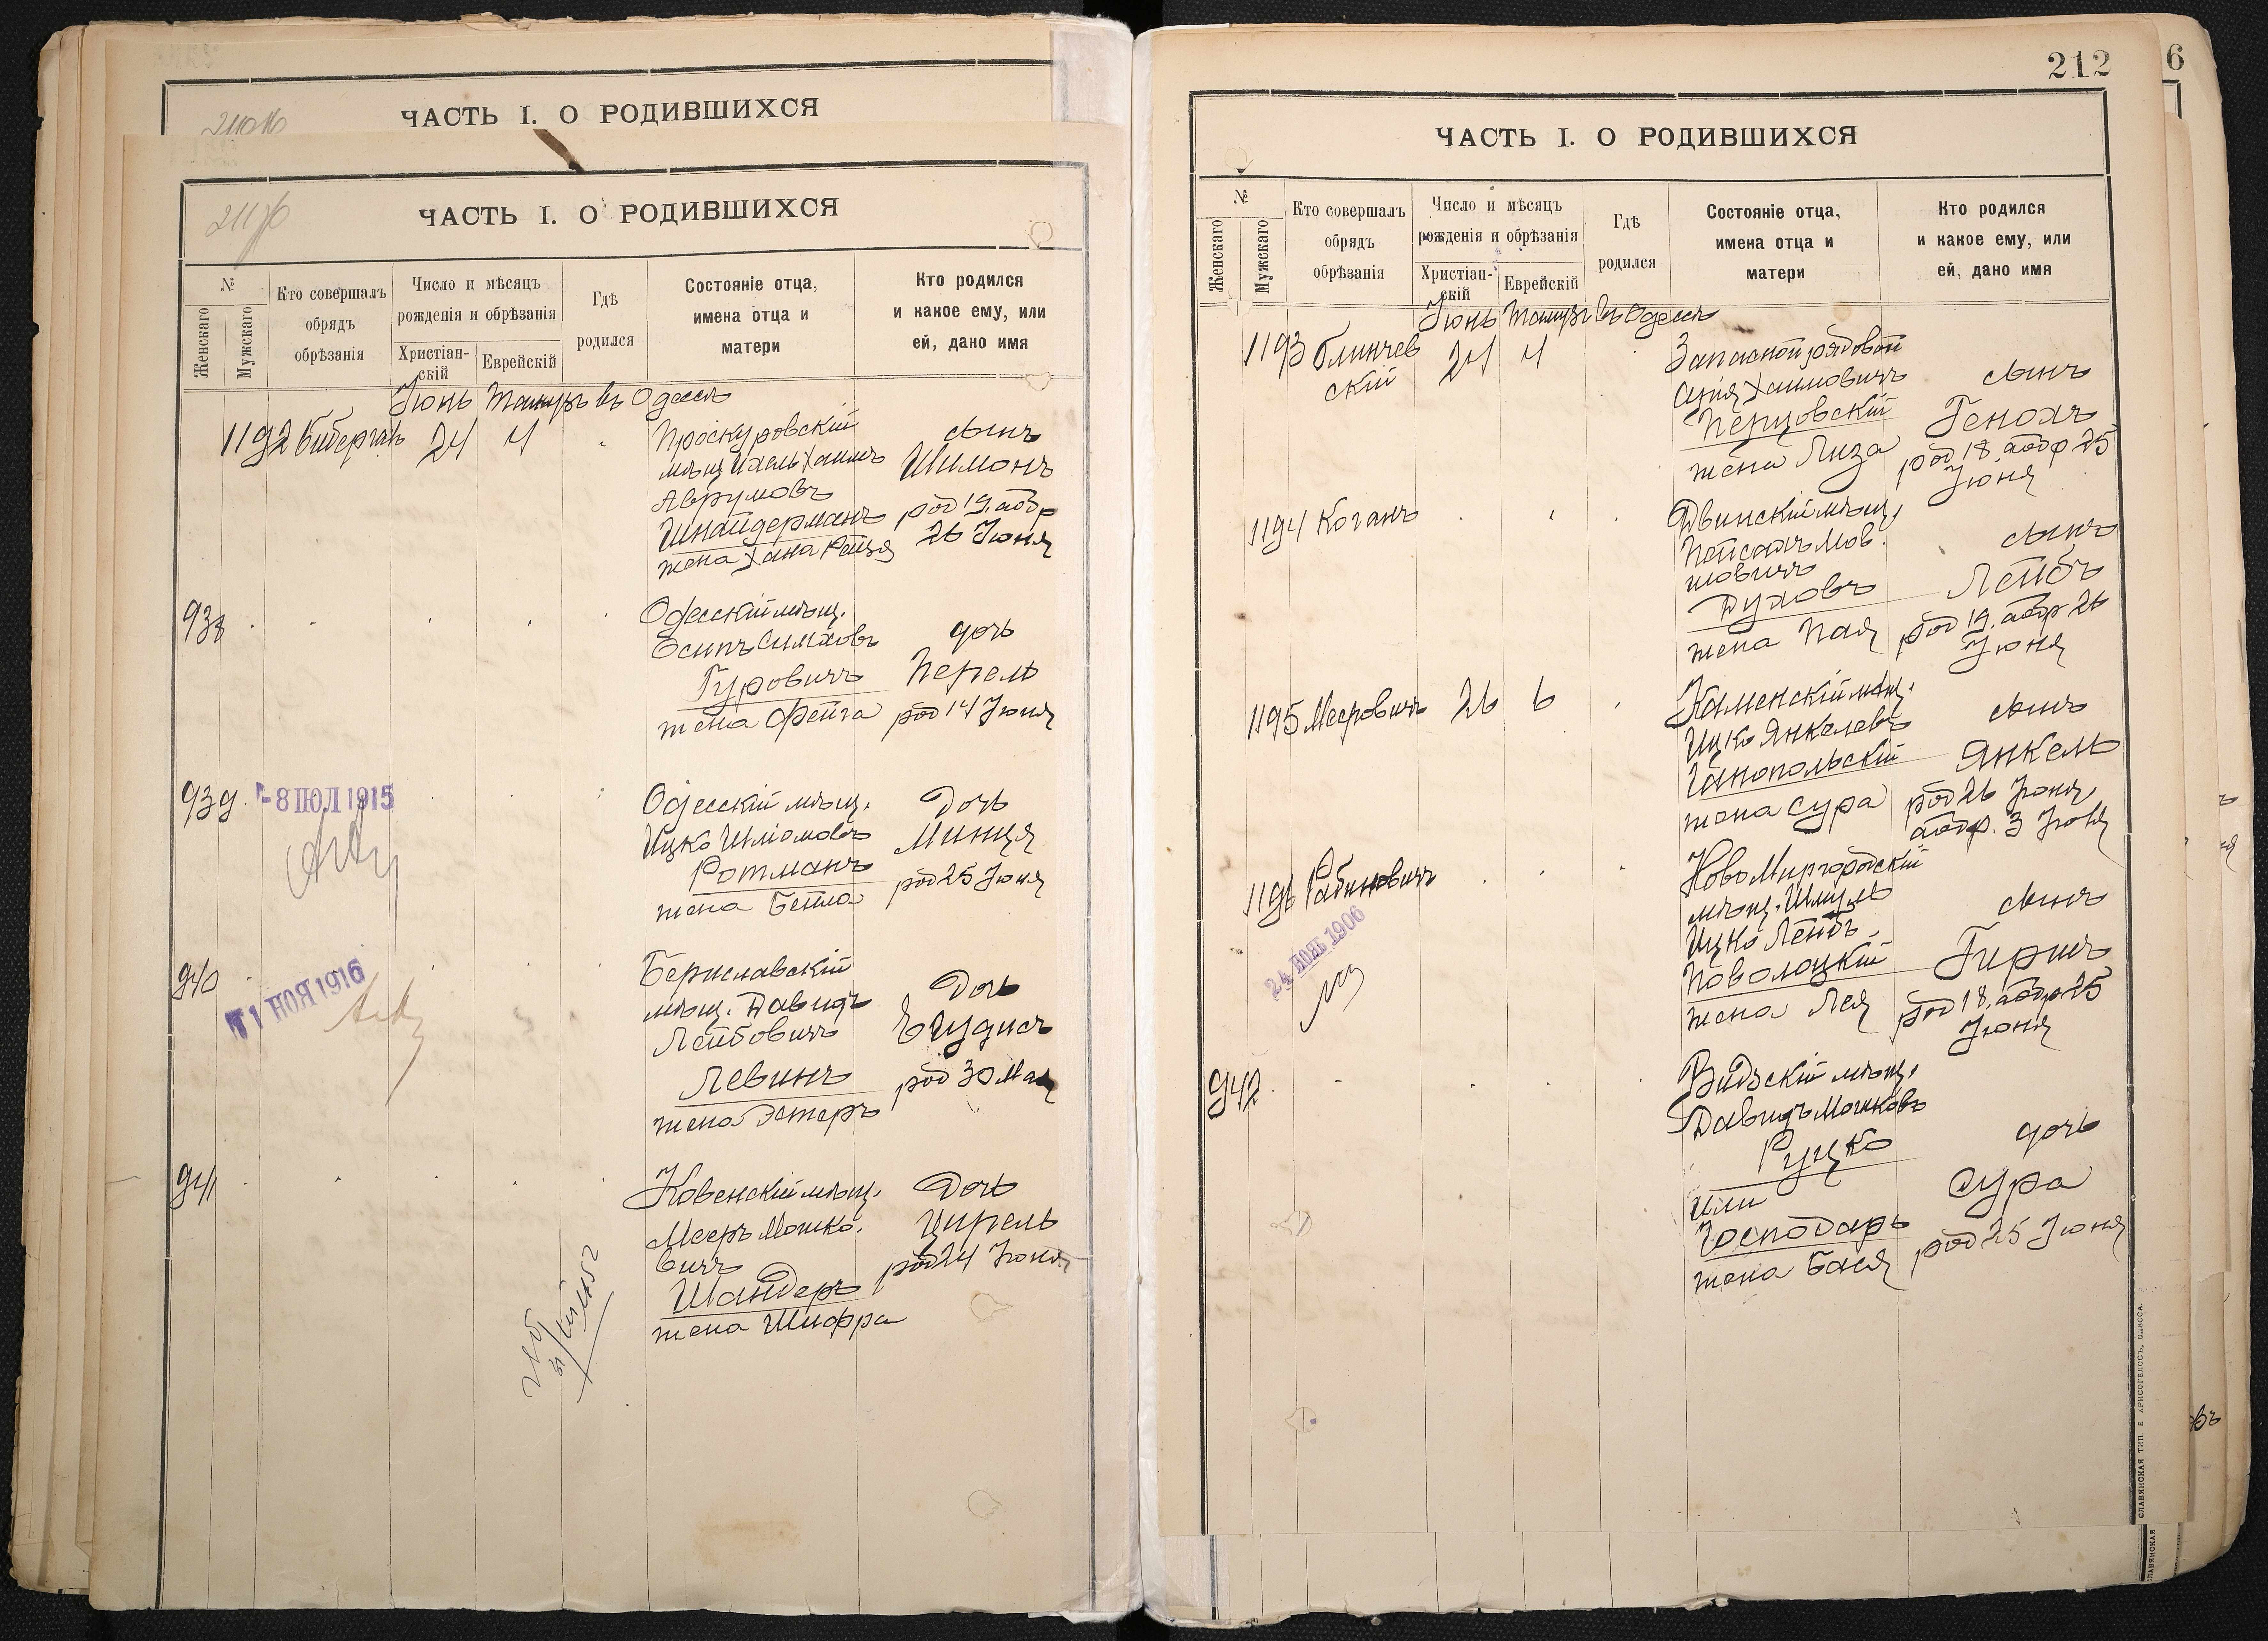 ЧАСТЬ I. О РОДИВШИХСЯ
ЧАСТЬ I. О РОДИВШИХСЯ
№
Женскаго
Мужскаго
Кто совершалъ
обрядъ
обрѣзанія
Число и мѣсяцъ
рожденія и обрѣзанія
Христіан-
скій
Еврейскій
Гдѣ
родился
Состояніе отца,
имена отца и
матери
Кто родился
и какое ему, или
ей, дано имя
Іюнь Тамузъ въ Одессѣ
1192
24 4
Проскуровскій
мѣщ Ихель Хаимъ
Аврумовъ
Шнайдерманъ
жена Хана Рейзя
сынъ
Шимонъ
род 19. аобр
26 Іюня
938
Одесскій мѣщ.
Есипъ Симховъ
Гуровичъ
жена Фейга
дочь
Перель
род 14 Іюня
939
-8 ІЮЛ 1915
Одесскій мѣщ.
Ицко Шліомовъ
Ротманъ
жена Бейла
Дочь
Минця
род 25 Іюня
940
11 НОЯ 1916
Бериславскій
мѣщ. Давидъ
Лейбовичъ
Левинъ
жена Эстеръ
Дочь
род 30 Мая
941
Ковенскій мѣщ.
Мееръ Мошко-
вичъ
Шандеръ
жена Шифра
Дочь
Цирель
род 24 Іюня
212
6
ЧАСТЬ I. О РОДИВШИХСЯ
№
Женскаго
Мужскаго
Кто совершалъ
обрядъ
обрѣзанія
Число и мѣсяцъ
рожденія и обрѣзанія
Христіан-
скій
Еврейскій
Гдѣ
родился
Состояніе отца,
имена отца и
матери
Кто родился
и какое ему, или
ей, дано имя
Іюнь Тамузъ въ Одессѣ
1193 Блинчев
скій
24 4
Запасной рядовой
Хаимовичъ
Перцовскій
жена Лиза
сынъ
Генохъ
род 18. аобр 25
Іюня
1194 Коганъ
Двинскій мѣщ.
Пейсахъ Мов-
шовичъ
Духовъ
жена Пая
сынъ
Лейбъ
род 19. аобр 26
Іюня
1195 Мееровичъ 26 6
Каменскій мѣщ.
Ицко Янкелевъ
жена Сура
сынъ
Янкель
род 26 Іюня
аобр. 3 Іюля
1196 Рабиновичъ
24 НОЯБ 1906
НовоМиргородскій
мѣщ. Шмуль
Ицко Лейб.
Поволоцкій
жена Лея
сынъ
Гиршъ
род 18. аобр 25
Іюня
942
Видзскій мѣщ.
Давидъ Мошковъ
Руцко
или
Господарь
жена Бася
дочь
Сура
род 25 Іюня
СЛАВЯНСКАЯ ТИП. Е. ХРИСОГЕЛОСЪ, ОДЕССА.